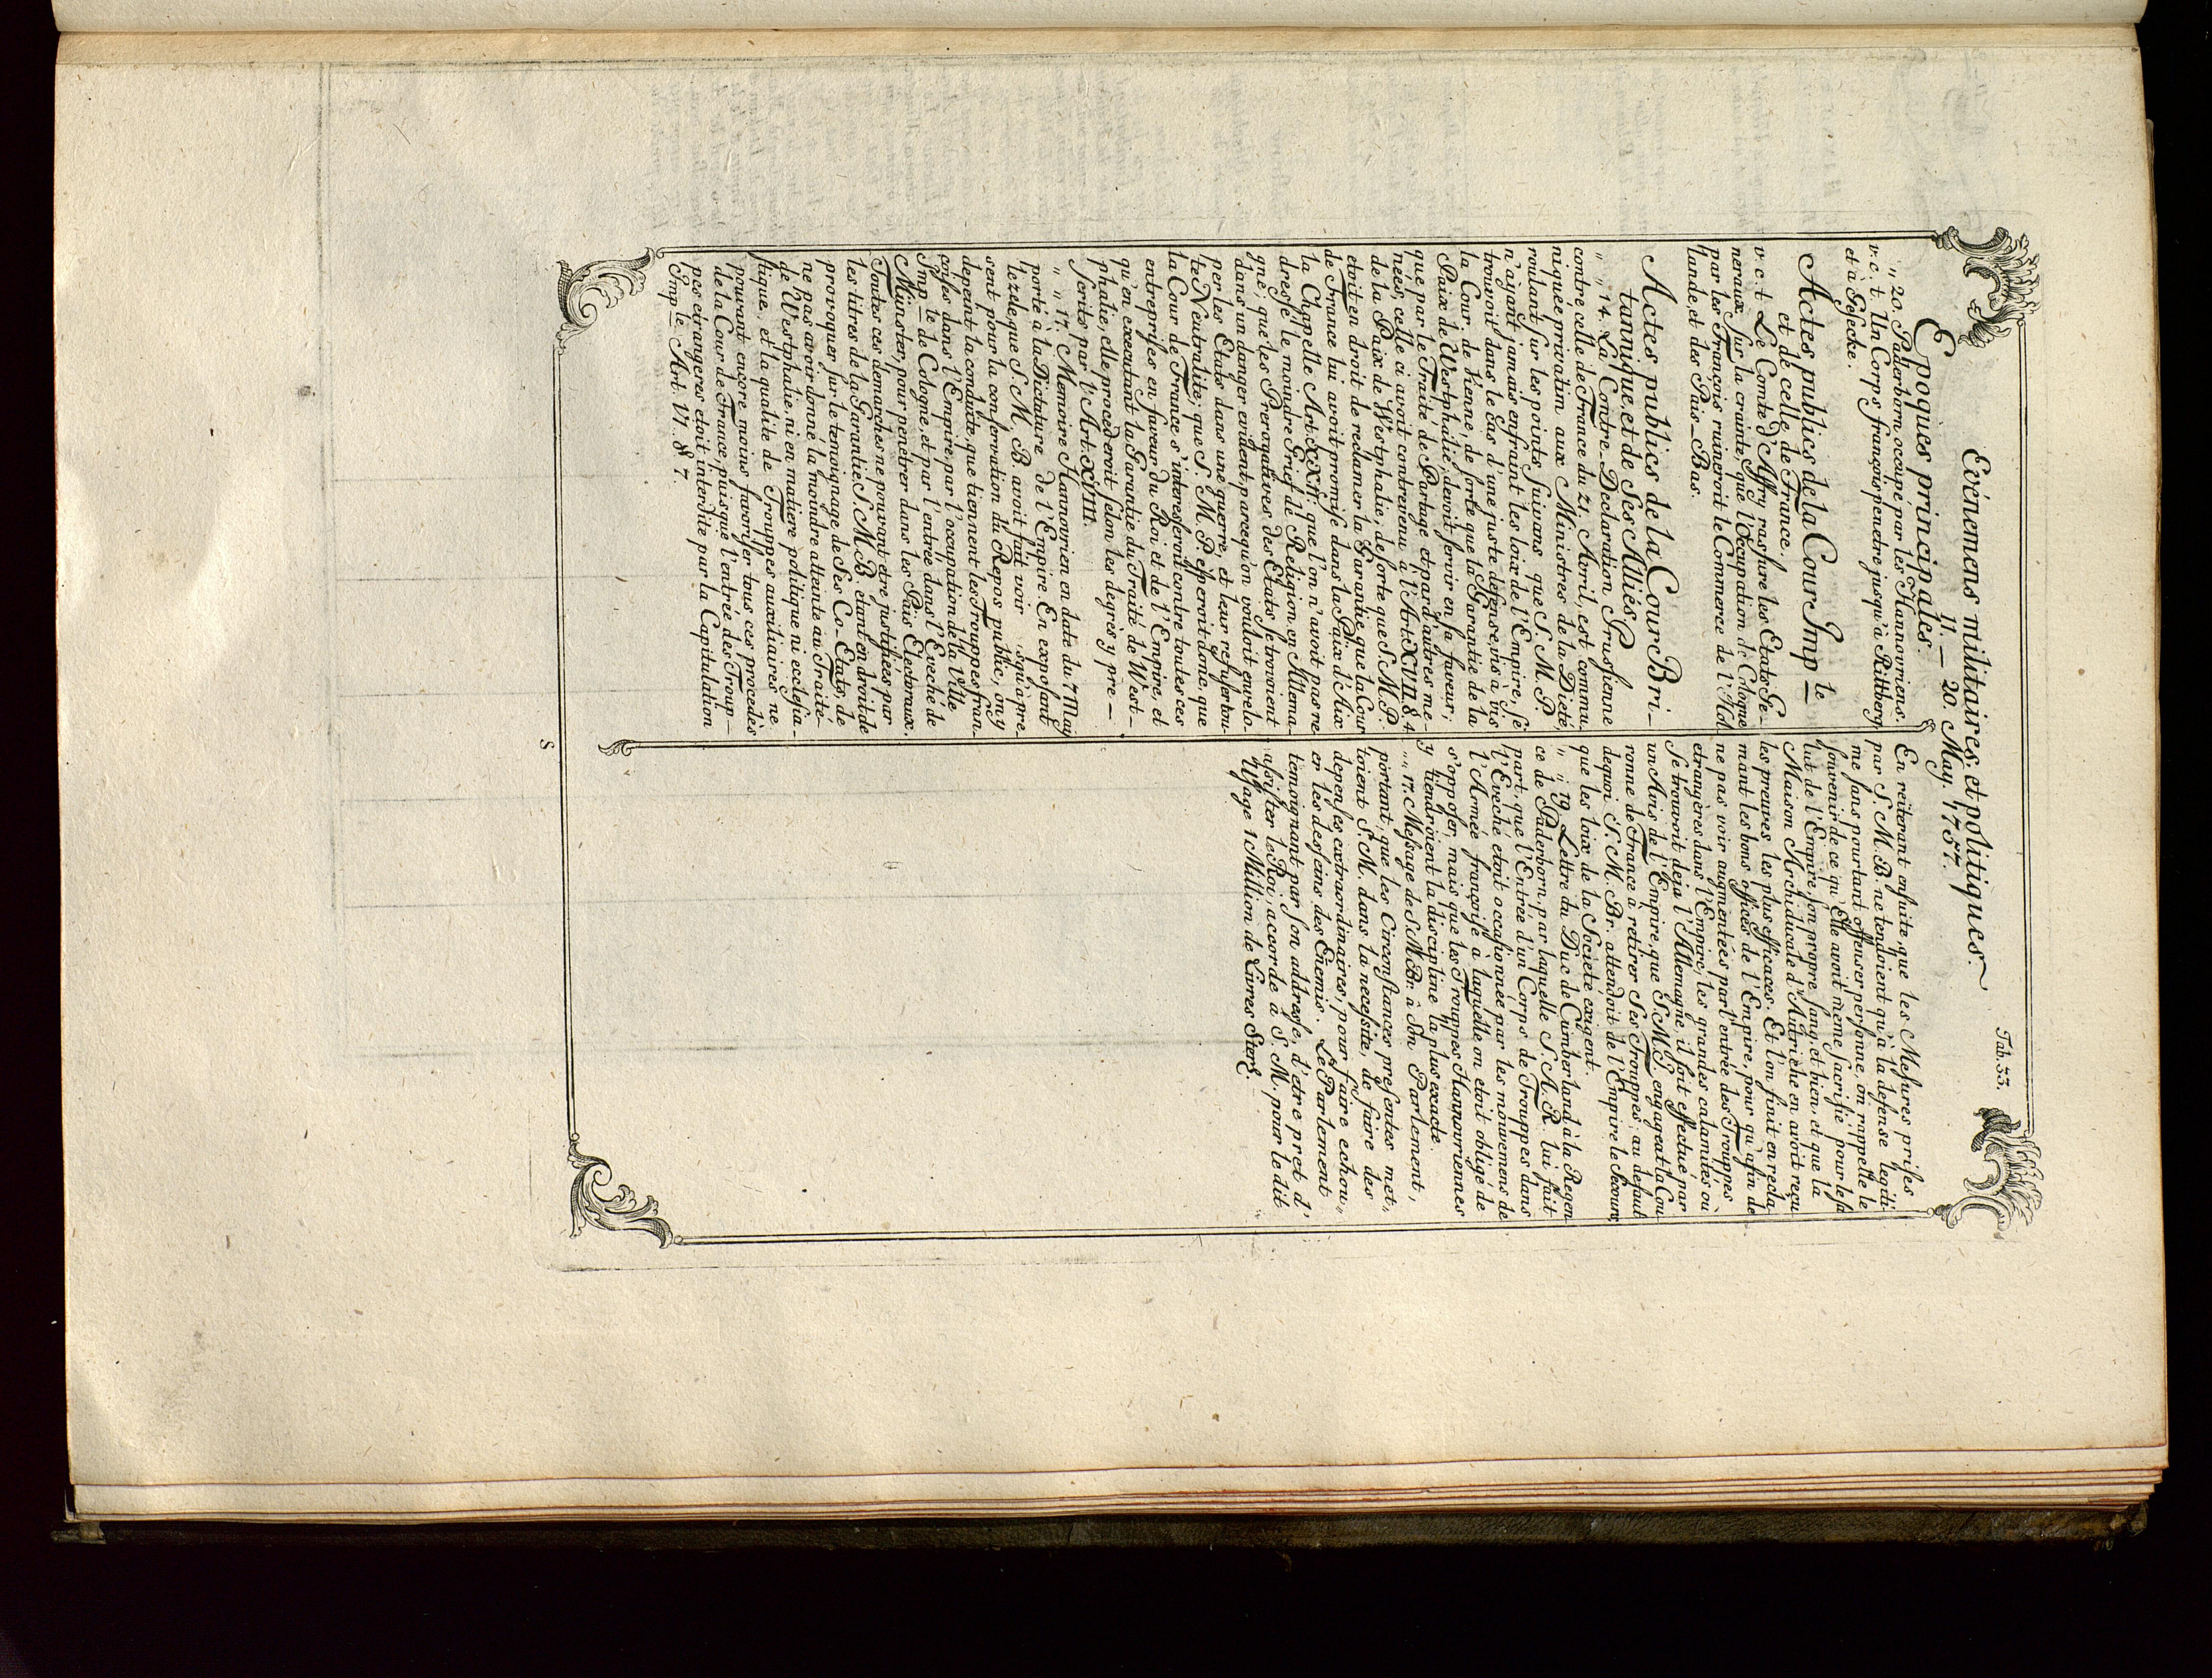 Tab. 33.
Evénemens militaires, et politiques.
11. — 20. May. 1757.
Epoques principales.
„ 20. Paderborn occupé par les Hannovriens.
v. c. t. Un Corps françois penetre jusqu'à Rittberg
et à Gesecke.
Actes publics de la Cour Imp le
et de celle de France.
v. c. t. Le Comte d'Affry rassure les Etats Ge-
neraux sur la crainte, que l'Occupation de Cologne
par les François ruineroit le Commerce de l'Hol
lande, et des Païs-Bas.
Actes publics de la Cour Bri-
tannique, et de ses Alliés.
„ „ 14. La Contre-Declaration Prussienne
contre celle de France du 21. Avril, est commu-
niquée privatim aux Ministres de la Diete,
roulant sur les points suivans, que S. M. P.
n'ajant jamais enfraint les loix de l'Empire, se
trouvoit dans le cas d'une juste defense, vis à vis
la Cour de Vienne, de sorte que la Garantie de la
Paix de Westphalie, devoit servir en sa faveur;
que par le Traité de Partage et par d'autres me-
nées, celle ci avoit contrevenu à l'Art. XVII. §. 4.
de la Paix de Westphalie, de sorte que S. M. P.
etoit en droit de reclamer la Garantie, que la Cour
de France lui avoit promise dans la Paix d'Aix
la Chapelle Art. XXII; que l'on n'avoit pas re
dressé le moindre Grief de Religion en Allema-
gne; que les Prerogatives des Etats se trouvoient
dans un danger evident, parcequ'on vouloit envelo-
per les Etats dans une guerre, et leur refuser tou-
te Neutralité; que S. M. P. esperoit donc, que
la Cour de France s'interesseroit contre toutes ces
entreprises en faveur du Roi et de l'Empire, et
qu'en executant la Garantie du Traité de West-
phalie, elle procederoit selon les degrés y pre-
scrits par l'Art. XVII.
„ „ 17. Memoire Hannovrien en date du 7 May
porté à la Dictature de l'Empire. En exposant
le zele, que S. M. B. avoit fait voir squ'à pre-
sent pour la conservation du Repos public, on y
depeint la conduite, que tiennent les Trouppes fran-
çoises dans l'Empire, par l'occupation de la Ville
Imp le de Cologne, et par l'entrée dans l'Eveché de
Münster, pour penetrer dans les Païs Electoraux.
Toutes ces demarches ne pouvant etre justifiées par
les titres de la Garantie, S. M. B. etant en droit de
provoquer sur le temoignage de ses Co-Etats, de
ne pas avoir donné la moindre atteinte au Traité
de Westphalie, ni en matiere politique ni ecclesia-
stique, et la qualité de Trouppes auxiliaires ne
pouvant encore moins favoriser tous ces procedés
de la Cour de France, puisque l'entrée des Troup-
pes etrangeres etoit interdite par la Capitulation
Imp le Art. VI. § 7.
En reiterant ensuite, que les Mesures prises
par S. M. B. ne tendoient qu'à la defense legiti
me sans pourtant offenser personne, on rappelle le
souvenir de ce qu'Elle avoit meme sacrifié pour le sa
lut de l'Empire, son propre sang, et bien, et que la
Maison Archiducale d'Autriche en avoit reçu
les preuves les plus efficaces. Et l'on finit en recla
mant les bons offices de l'Empire, pour qu'afin de
ne pas voir augmentées par l'entrée des Trouppes
etrangeres dans l'Empire, les grandes calamités, où
se trouvoit deja l'Allemagne, il soit effectué par
un Avis de l'Empire, que S. M. I. engageat la Cou
ronne de France à retirer ses Trouppes, au defaut
dequoi S. M. Br. attendoit de l'Empire le secours,
que les loix de la Societé exigent.
„ „ 19. Lettre du Duc de Cumberland à la Regen
ce de Paderborn, par laquelle S. A. R. lui fait
part, que l'Entrée d'un Corps de Trouppes dans
l'Eveché etoit occasionnée par les mouvemens de
l'Armée françoise, à laquelle on etoit obligé de
s'opposer, mais que les Trouppes Hannovriennes
y tiendroient la discipline la plus exacte.
„ „ 17. Message de S. M. Br. à Son Parlement,
portant, que les Circonstances presentes met-
toient S. M. dans la necessité, de faire des
depenses extraordinaires, pour faire echou-
er les desseins des Enemis. Le Parlement
temoignant par son addresse, d'etre pret d'
assister le Roi, accorde à S. M. pour le dit
Usage 1 Million de Livres Sterl.
S